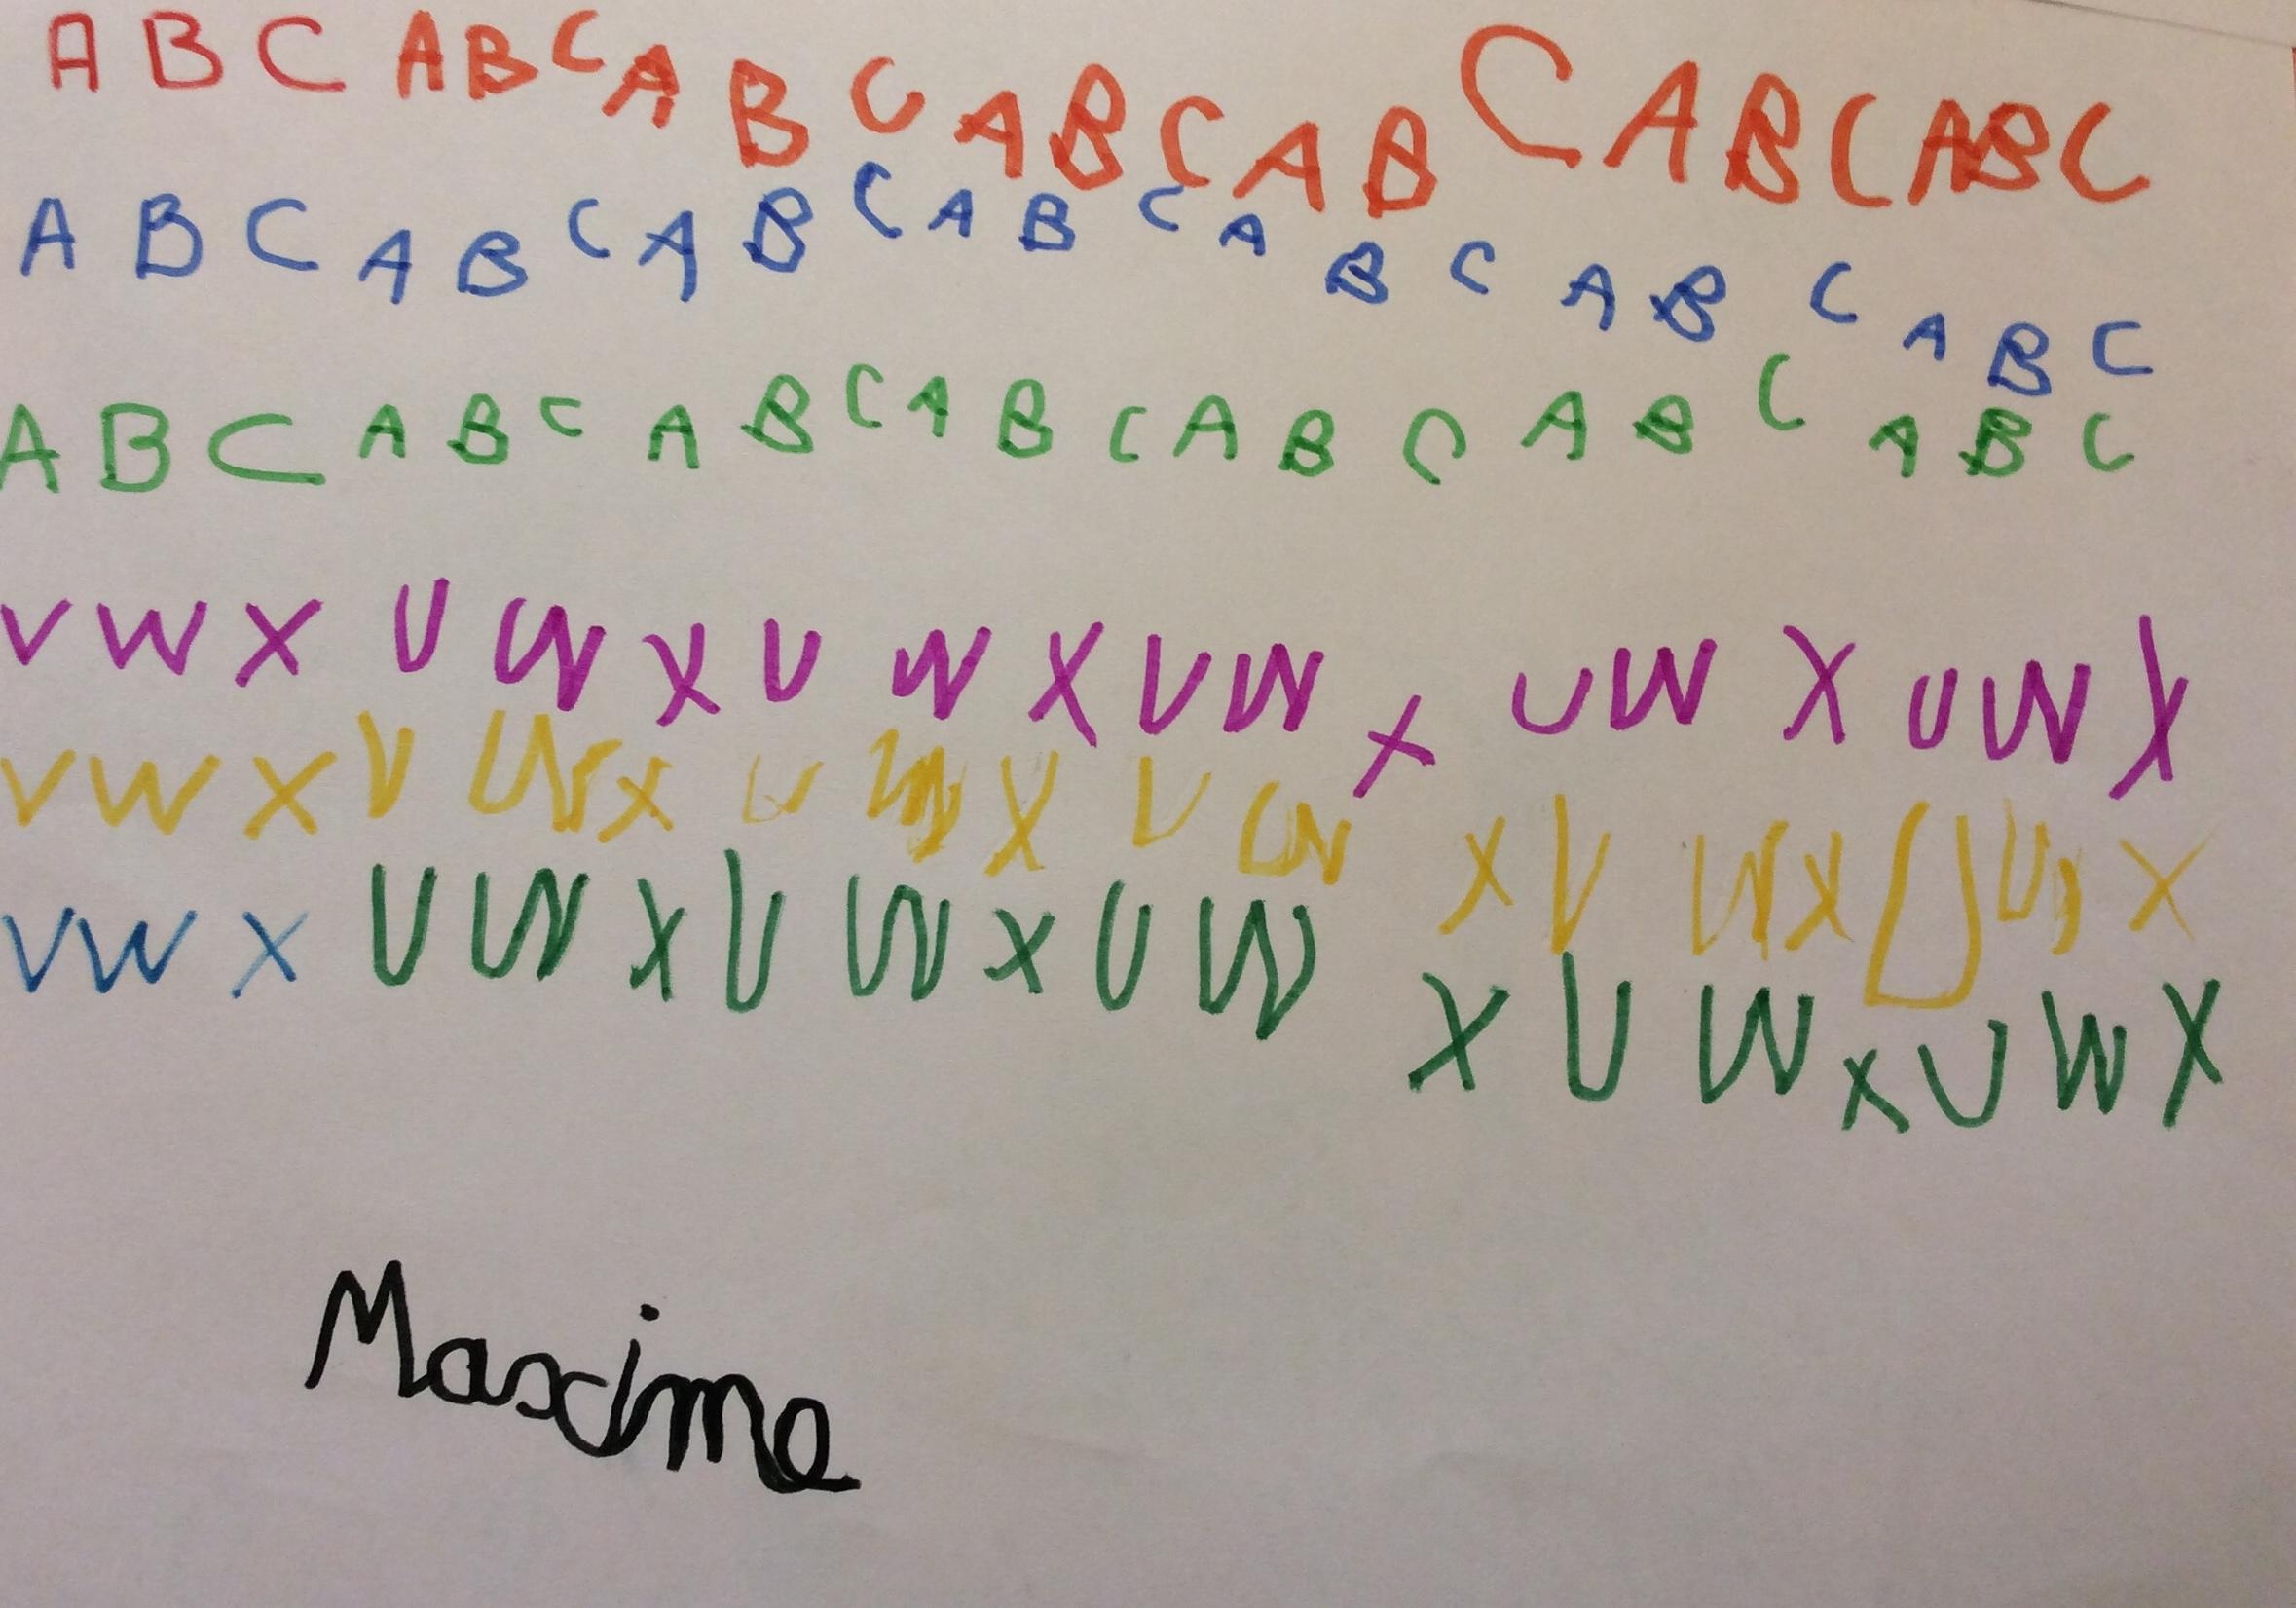 A B C A B C A B C A B C A B C A B C A B C
A B C A B C A B C A B C A B C A B C A B C
A B C A B C A B C A B C A B C A B C A B C
V W X U W X U W X U W X U W X U W X
V W X V W X U W X V W X V W X U W X
V W X U W X U W X U W X U W X U W X
Maxime